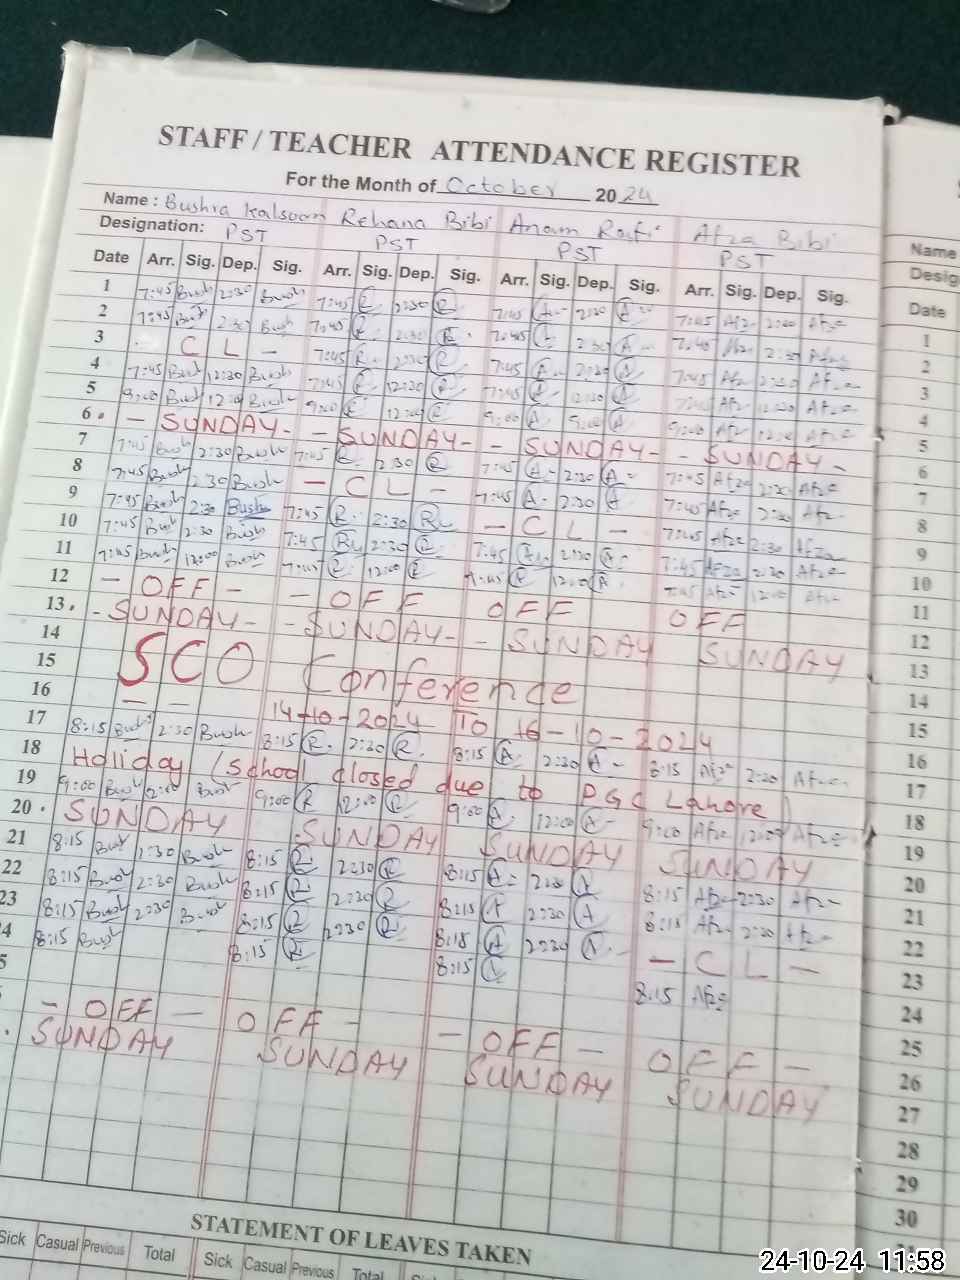 STAFF / TEACHER ATTENDANCE REGISTER
For the Month of October 2024
Name : Bushra Kalsoom Rehana Bibi Anam Rafi Afza Bibi
Designation: PST PST PST PST
Date Arr. Sig. Dep. Sig. Arr. Sig. Dep. Sig. Arr. Sig. Dep. Sig. Arr. Sig. Dep. Sig.
1 7:45 Bush 2:30 Bush 7:45 R 2:30 R 7:45 A 2:30 A 7:45 Afz 2:30 Afz
2 7:45 Bush 2:30 Bush 7:45 R 2:30 R 7:45 A 2:30 A 7:40 Afz 2:30
3 C L - 7:45 R 2:30 R 7:45 A 2:30 A 7:45 Afz 2:30 Afz
4 7:45 Bush 12:30 Bush 7:45 R 12:30 R 7:45 A 12:30 A 7:45 Afz 12:30 Afz
5 9:00 Bush 12:00 Bush 9:00 R 12:00 R 9:00 A 9:00 A 9:00 Afz 12:00 Afz
6. - SUNDAY - - SUNDAY - - SUNDAY - - SUNDAY -
7 7:45 Bush 2:30 Bush 7:45 R 2:30 R 7:45 A 2:30 A 7:45 Afz 2:30 Afz
8 7:45 Bush 2:30 Bush - C L - 7:45 A 2:30 A 7:45 Afz 2:30 Afz
9 7:45 Bush 2:30 Bush 7:45 R 2:30 R - C L - 7:45 Afz 2:30 Afza
10 7:45 Bush 2:30 Bush 7:45 R 2:30 R 7:45 A 2:30 A 7:45 Afza 2:30 Afz
11 7:45 Bush 12:00 Bush 7:45 R 12:00 R 7:45 12:00 A 7:45 Afz 12:00 Afz
12 - OFF - - OFF OFF OFF
13. - SUNDAY - - SUNDAY - - SUNDAY SUNDAY
14
15 SCO Conference
16 - - 14-10-2024 To 16-10-2024
17 8:15 Bush 2:30 Bush 8:15 R. 2:30 R. 8:15 A 2:30 A 8:15 Afz 2:30 Afz
18 Holiday (School closed due to PGC Lahore)
19 9:00 Bush 12:00 Bush 9:00 R 12:00 R 9:00 A 12:00 A 9:00 Afz 12:00 Afz
20. SUNDAY SUNDAY SUNDAY SUNDAY
21 8:15 Bush 2:30 Bush 8:15 R 2:30 R 8:15 A 2:30 A 8:15 Afz 2:30 Afz
22 8:15 Bush 2:30 Bush 8:15 R 2:30 R 8:15 A 2:30 A 8:15 Afz 2:30 Afz
23 8:15 Bush 2:30 Bush 8:15 R 2:30 R 8:15 A 2:30 A - C L -
4 8:15 Bush 8:15 R 8:15 A 8:15 Afz
5
- OFF - OFF - - OFF - OFF -
. SUNDAY SUNDAY SUNDAY SUNDAY
STATEMENT OF LEAVES TAKEN
Sick Casual Previous Total Sick Casual Previous Total
Name
Desig
Date
1
2
3
4
5
6
7
8
9
10
11
12
13
14
15
16
17
18
19
20
21
22
23
24
25
26
27
28
29
30
24-10-24 11:58